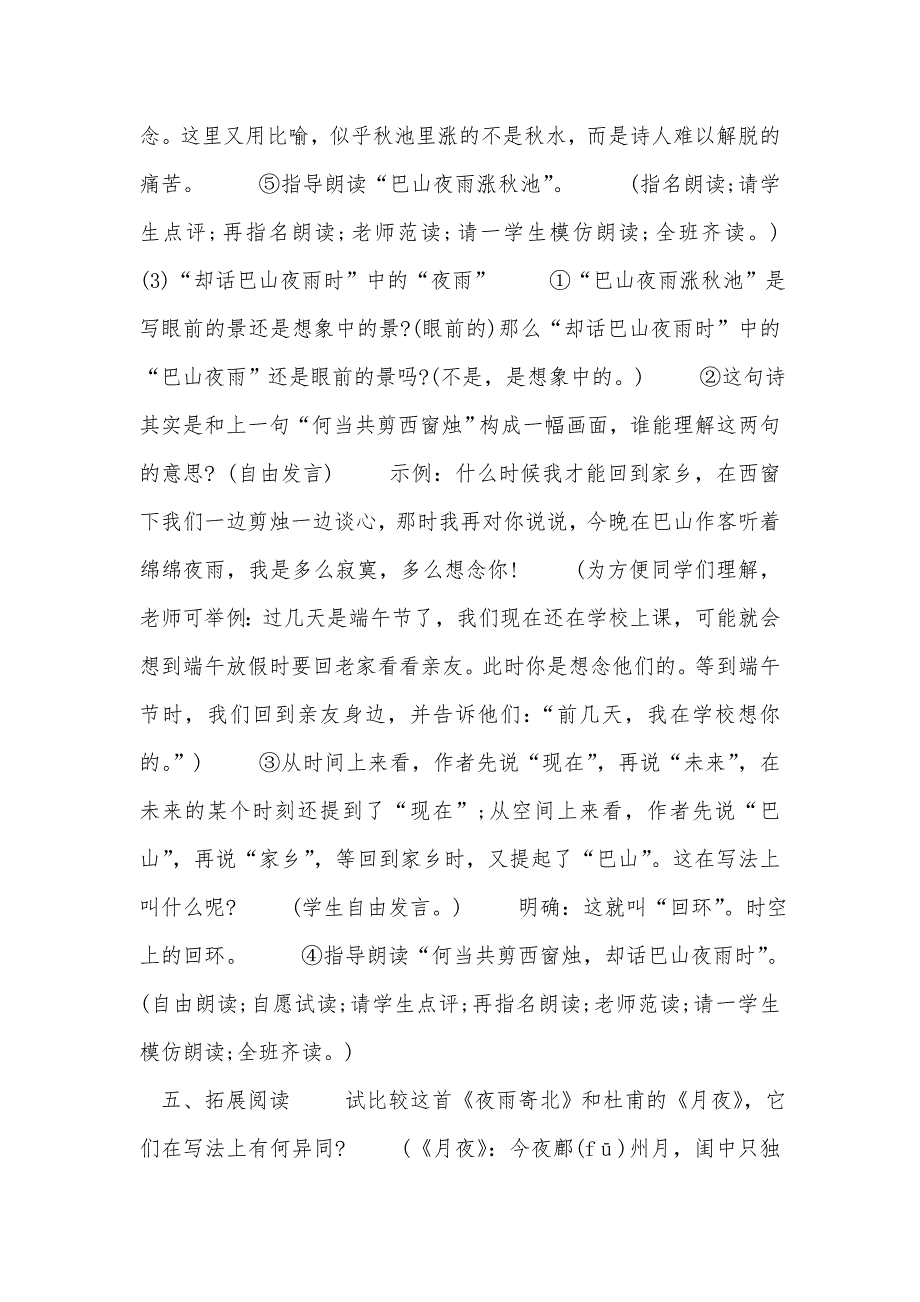 念。这里又用比喻，似乎秋池里涨的不是秋水，而是诗人难以解脱的
痛苦。　　⑤指导朗读“巴山夜雨涨秋池”。　　(指名朗读;请学
生点评;再指名朗读;老师范读;请一学生模仿朗读;全班齐读。)
(3)“却话巴山夜雨时”中的“夜雨”　　①“巴山夜雨涨秋池”是
写眼前的景还是想象中的景?(眼前的)那么“却话巴山夜雨时”中的
“巴山夜雨”还是眼前的景吗?(不是，是想象中的。)　　②这句诗
其实是和上一句“何当共剪西窗烛”构成一幅画面，谁能理解这两句
的意思? (自由发言)　　示例：什么时候我才能回到家乡，在西窗
下我们一边剪烛一边谈心，那时我再对你说说，今晚在巴山作客听着
绵绵夜雨，我是多么寂寞，多么想念你!　　(为方便同学们理解，
老师可举例：过几天是端午节了，我们现在还在学校上课，可能就会
想到端午放假时要回老家看看亲友。此时你是想念他们的。等到端午
节时，我们回到亲友身边，并告诉他们：“前几天，我在学校想你
的。”)　　③从时间上来看，作者先说“现在”，再说“未来”，在
未来的某个时刻还提到了“现在”;从空间上来看，作者先说“巴
山”，再说“家乡”，等回到家乡时，又提起了“巴山”。这在写法上
叫什么呢?　　(学生自由发言。)　　明确：这就叫“回环”。时空
上的回环。　　④指导朗读“何当共剪西窗烛，却话巴山夜雨时”。
(自由朗读;自愿试读;请学生点评;再指名朗读;老师范读;请一学生
模仿朗读;全班齐读。)
五、拓展阅读　　试比较这首《夜雨寄北》和杜甫的《月夜》，它
们在写法上有何异同?　　(《月夜》：今夜鄜(fū)州月，闺中只独